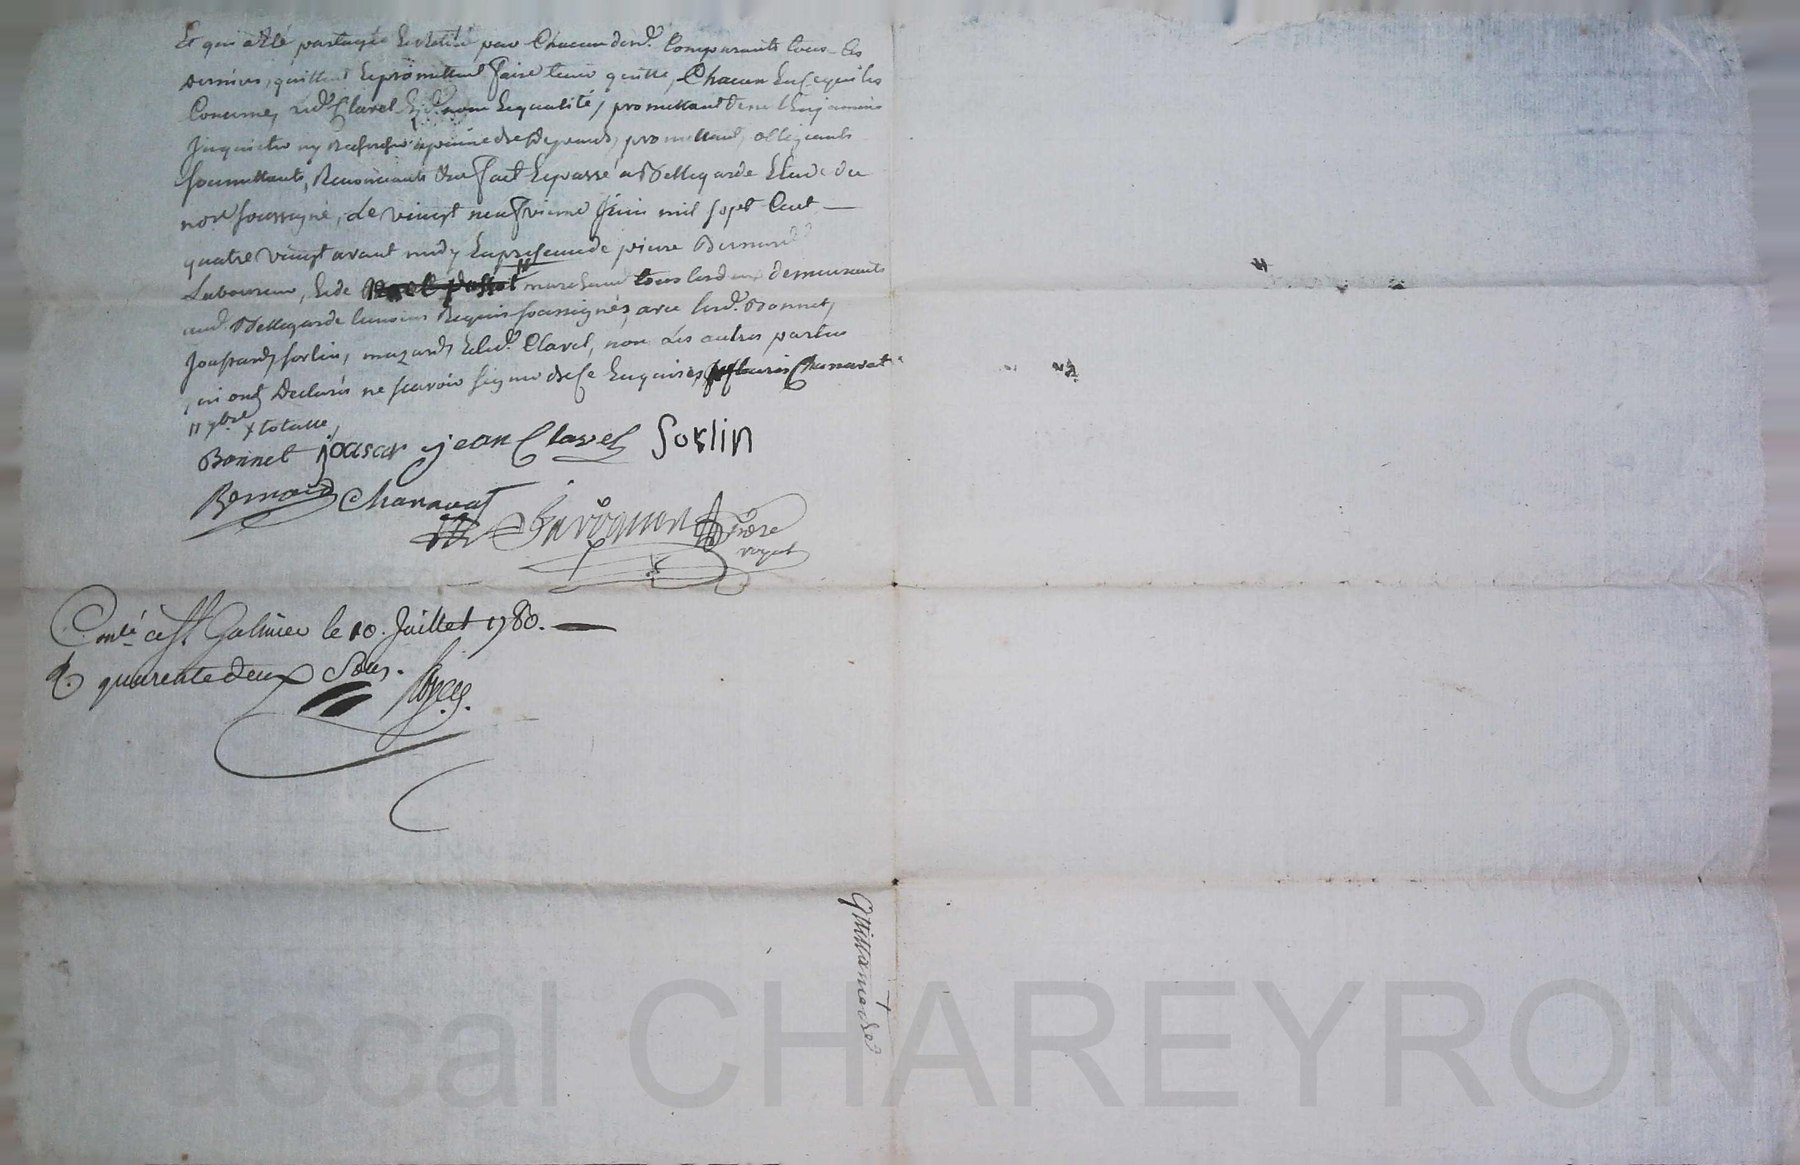 Et qui a été partagée par Chacun desd. Comparants tous les
derniers, quittent & promettent faire tenir quitte, Chacun En ce qui les
Concerne, led. Clavel nom & qualité, promettant de ne l'En jamais
Inquietter ny Rechercher a peine de depends, promettant, obligeants
Soumettants, Renonceants &ca fait & passé a Bellegarde Etude du
nore. soussigné, Le vingt neufvieme Juin mil sept Cent
quatre vingt avant midy En presence de pierre Bernard
Laboureur, & de marchand tous les deux demeurants
aud. Bellegarde temoins Requis soussignés, avec lesd. Bonnet,
Jousrand, Sorlin, mazard, & led. Clavel, non Les autres parties
qui ont Declarés ne scavoir signer de ce Enquises, fleuris Chanavat
Bonnet joascar jean Clavel Sorlin
Bernard Chanavat
nore
royal
Conlé à St. Galmier le 10. Juillet 1780.
R. quarente deux Sous.
Quittance de
Pascal CHAREYRON